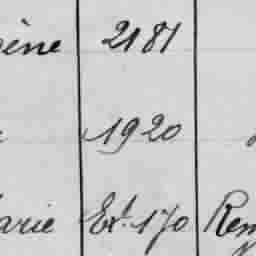 ène 2181
1920
arie Ext. 170 Rem